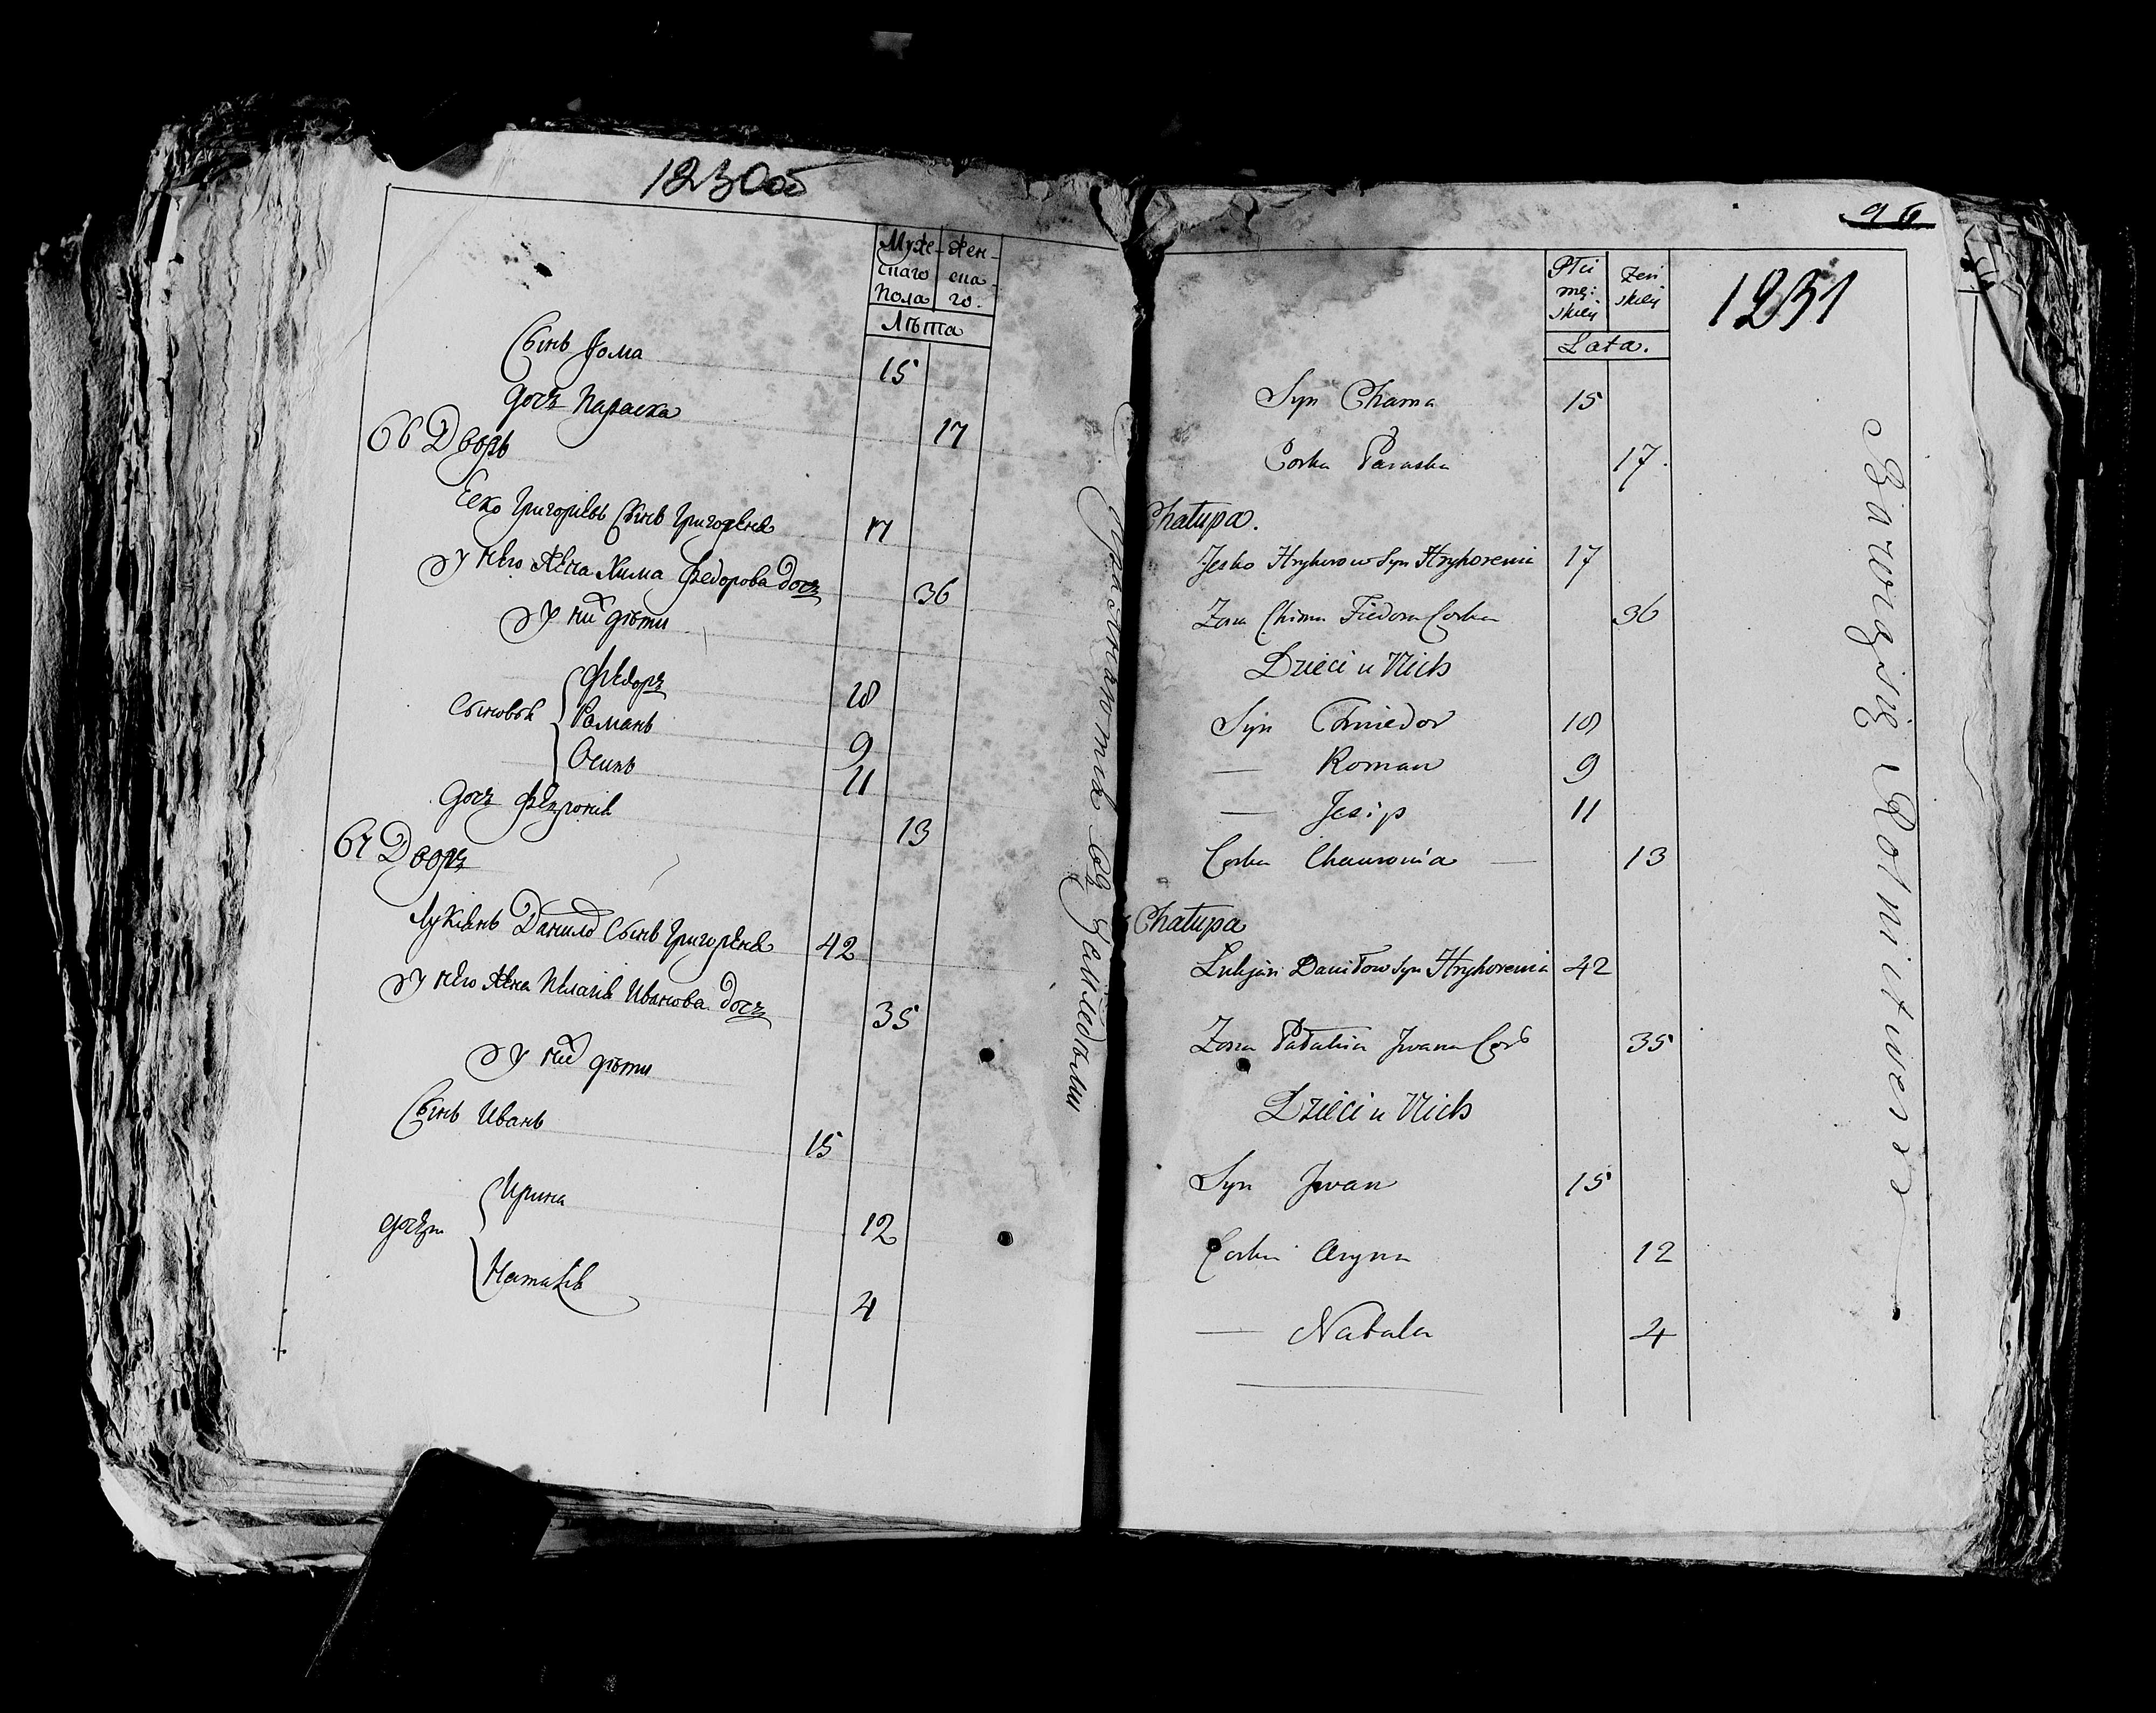 1230об
Муже- Жен-
скаго ска-
Пола го.
Лѣта
Сынъ Хома 15
дочъ Параска 17
66 Дворъ
Еско Григорiевъ Сынъ Григоренко 17
У Него Жена Хима Федорова дочъ 36
У них дѣти
Сыновья
Федоръ 10
Романъ 9
Осипъ 11
Дочъ Февронiя 13
67 Дворъ
Лукiянъ Данило Сынъ Григоренко 42
У Него Жена Пелагiя Иванова дочъ 35
У них дѣти
Сынъ Иванъ 15
дочери
Ирина 12
Наталiя 4
Упражняютца въ Земледѣлии
96
1231
Płci Żeń
mę: skiey
skiey
Lata.
Syn Choma 15
Corka Paraska 17.
Chałupa.
Jesko Hryhorow Syn Hryhorenia 17
Zona Chima Fiedora Corka 36
Dzieci u Nich
Syn Chwiedor 10
— Roman 9
— Jesip 11
Corka Chawronia — 13
Chałupa
Lukjan Daniłow Syn Hryhorenia 42
Zona Pałahia Jwana Cor 35
Dzieci u Nich
Syn Jwan 15
Corka Aryna 12
— Natala 4
Bawią się Rolnictwem